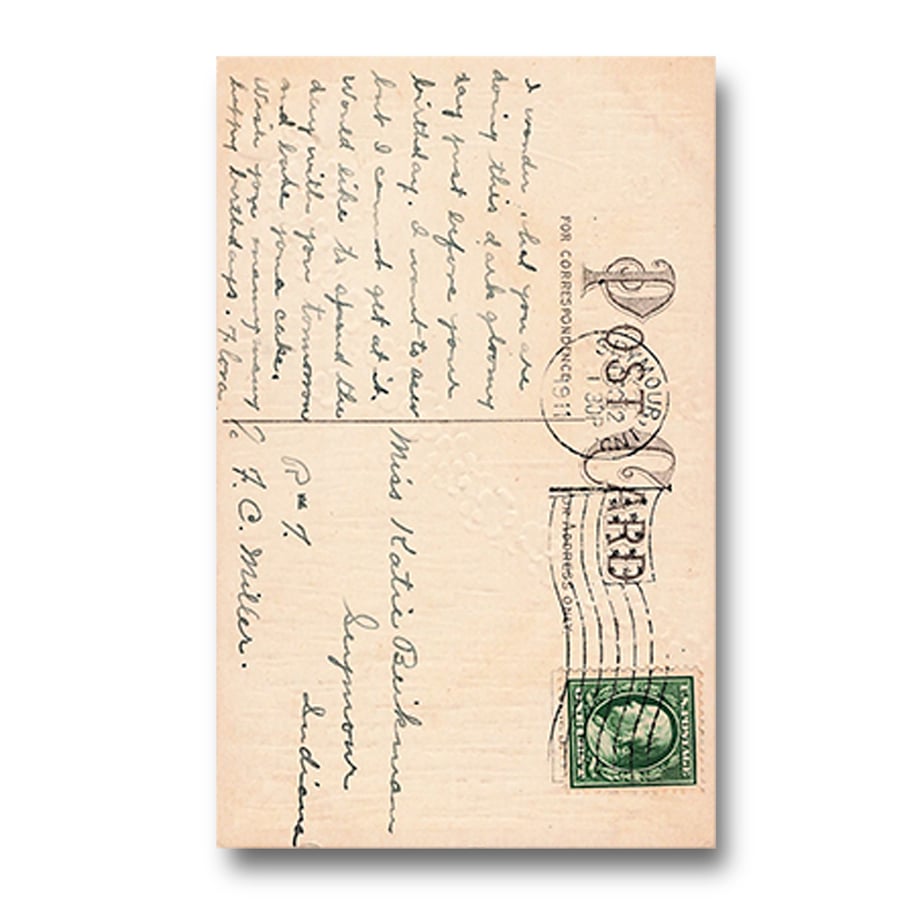 POST CARD
FOR CORRESPONDENCE
FOR ADDRESS ONLY
1 30P
1911
I wonder what you are
doing this dark gloomy
day just before your
birthday. I want to sew
but I cannot get at it.
Would like to spend the
day with you tomorrow
and bake you a cake.
Wish you many many
happy birthdays. Flora.
Miss Katie Beikman
Seymour
Indiana
R# 7.
℅ F. C. Miller.